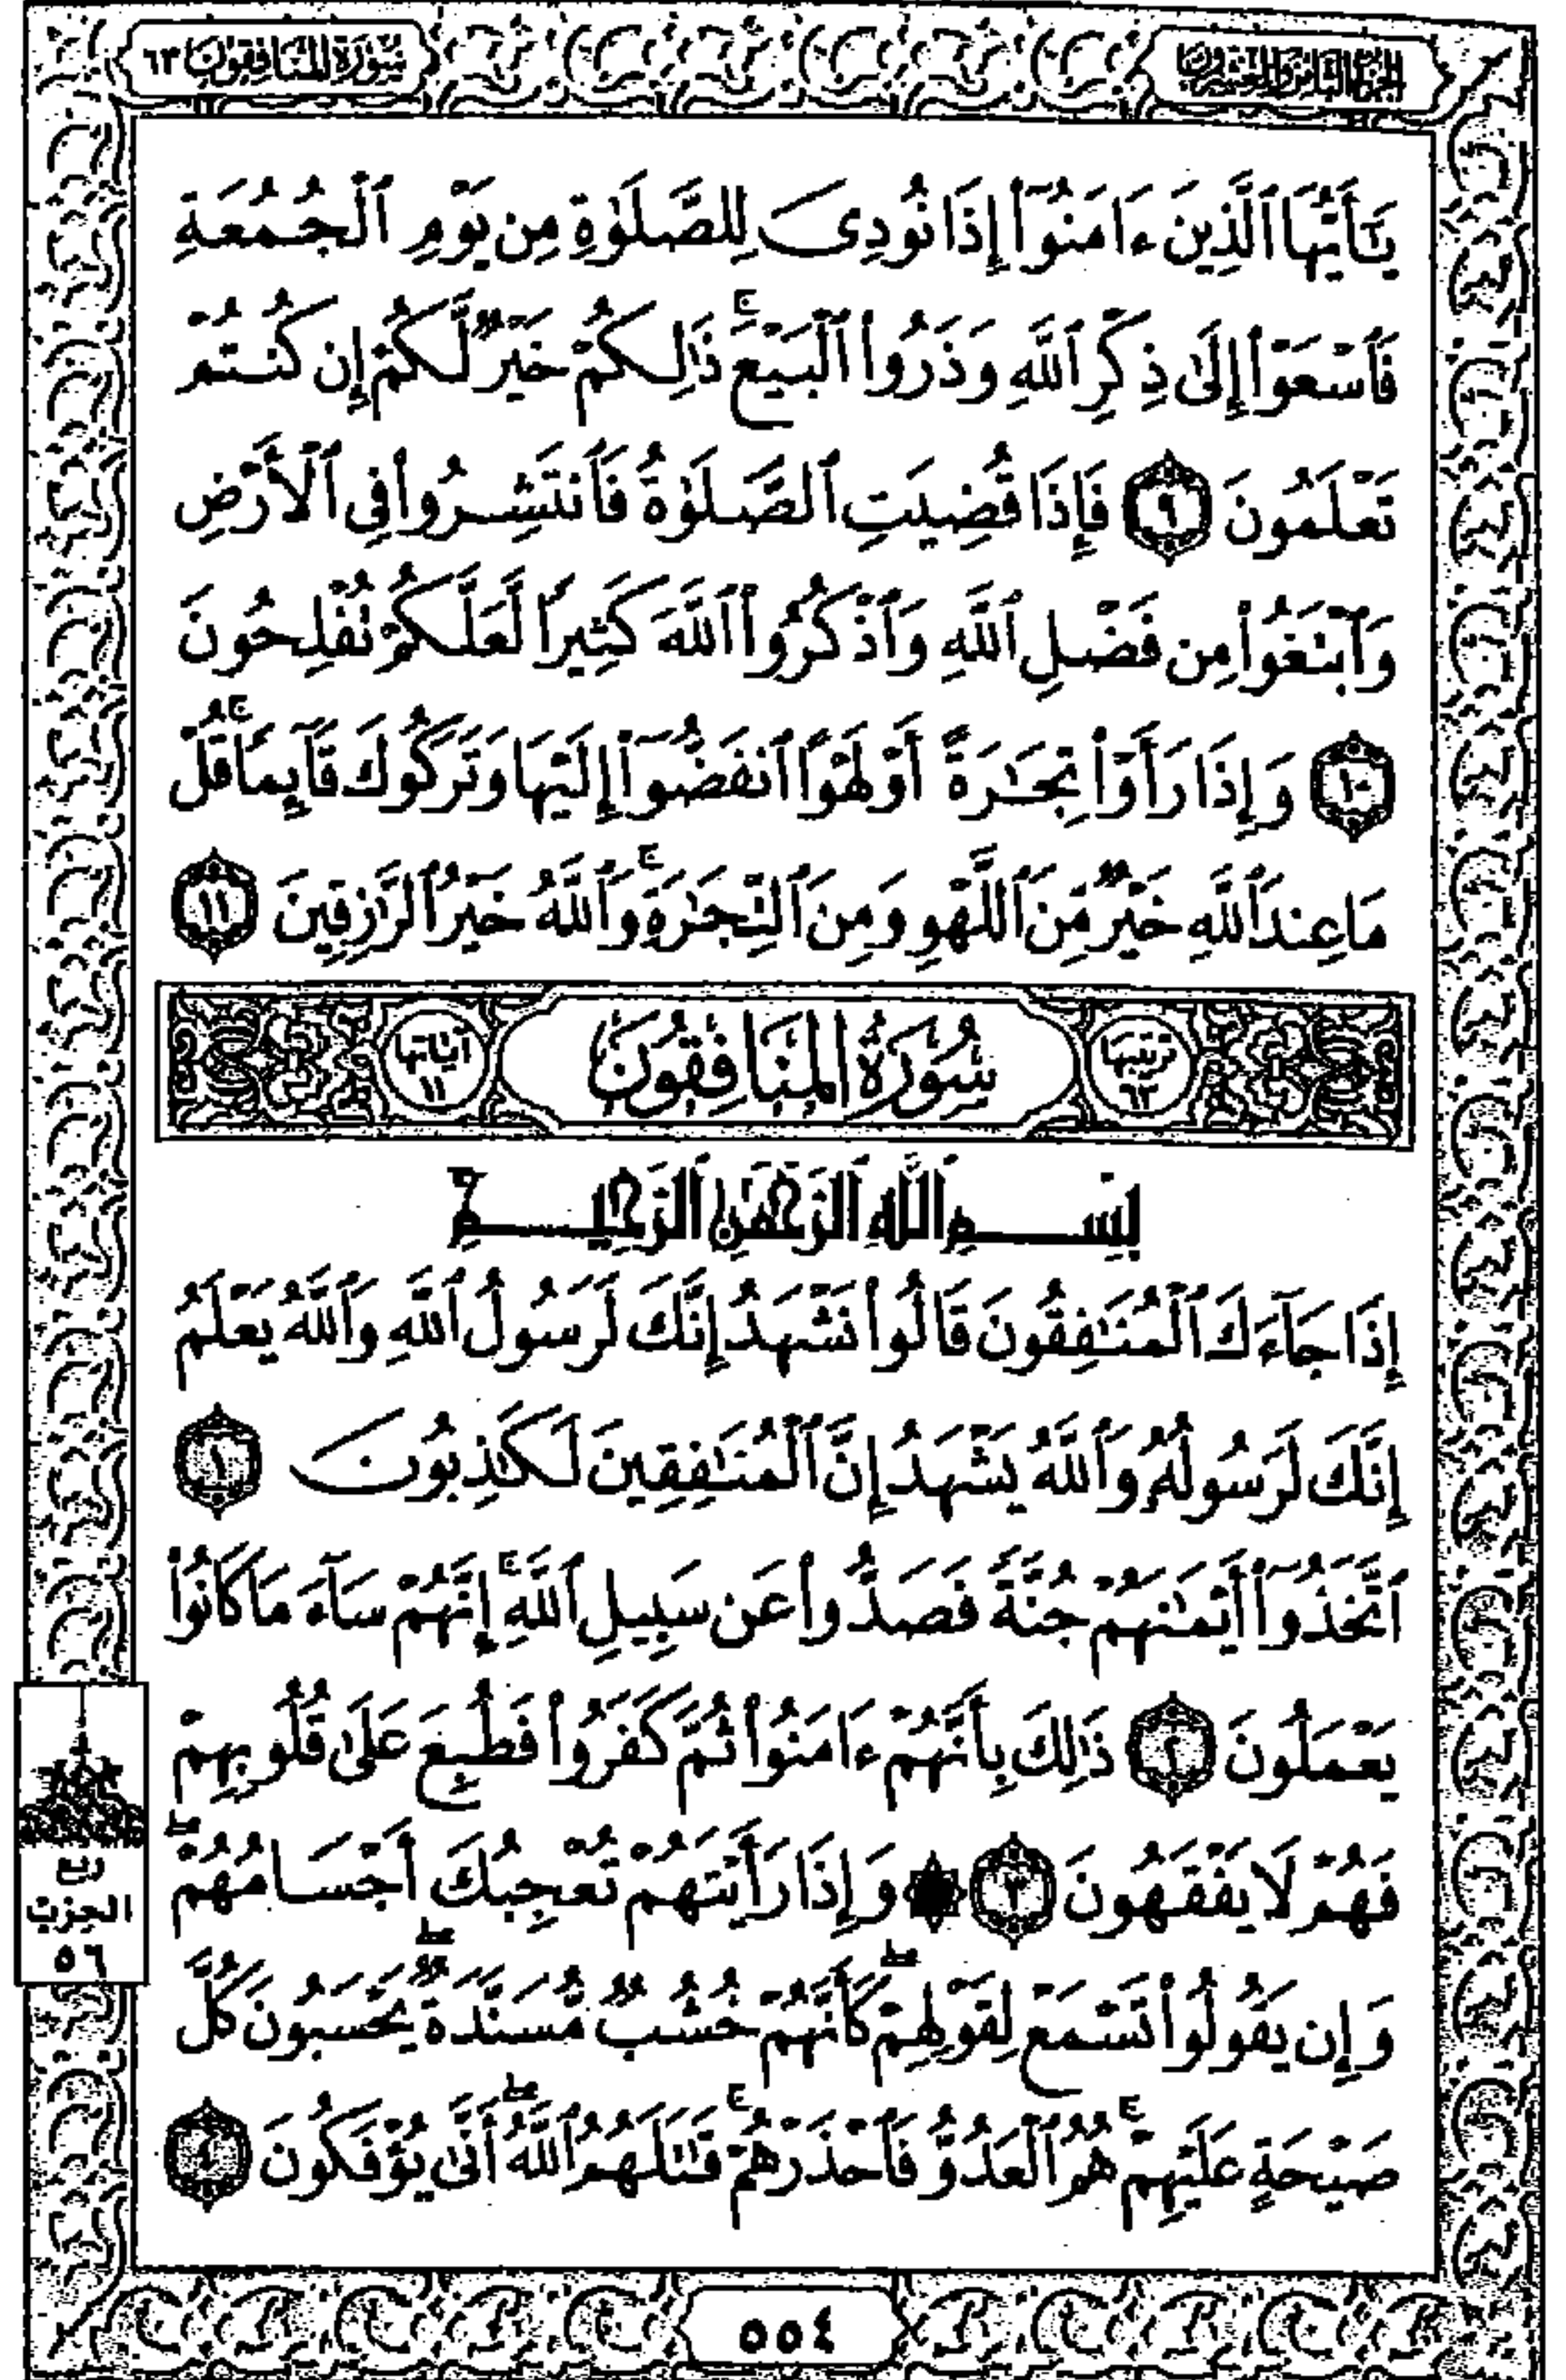 الجزء الثامن والعشرون
سورة المنافقون ٦٣
يَٰٓأَيُّهَا ٱلَّذِينَ ءَامَنُوٓا۟ إِذَا نُودِىَ لِلصَّلَوٰةِ مِن يَوْمِ ٱلْجُمُعَةِ
فَٱسْعَوْا۟ إِلَىٰ ذِكْرِ ٱللَّهِ وَذَرُوا۟ ٱلْبَيْعَ ۚ ذَٰلِكُمْ خَيْرٌ لَّكُمْ إِن كُنتُمْ
تَعْلَمُونَ ٩ فَإِذَا قُضِيَتِ ٱلصَّلَوٰةُ فَٱنتَشِرُوا۟ فِى ٱلْأَرْضِ
وَٱبْتَغُوا۟ مِن فَضْلِ ٱللَّهِ وَٱذْكُرُوا۟ ٱللَّهَ كَثِيرًا لَّعَلَّكُمْ تُفْلِحُونَ
١٠ وَإِذَا رَأَوْا۟ تِجَٰرَةً أَوْ لَهْوًا ٱنفَضُّوٓا۟ إِلَيْهَا وَتَرَكُوكَ قَآئِمًا ۚ قُلْ
مَا عِندَ ٱللَّهِ خَيْرٌ مِّنَ ٱللَّهْوِ وَمِنَ ٱلتِّجَٰرَةِ ۚ وَٱللَّهُ خَيْرُ ٱلرَّٰزِقِينَ ١١
ترتيبها ٦٣ سُورَةُ المُنَافِقُونَ آياتها ١١
بِسْمِ ٱللَّهِ ٱلرَّحْمَٰنِ ٱلرَّحِيمِ
إِذَا جَآءَكَ ٱلْمُنَٰفِقُونَ قَالُوا۟ نَشْهَدُ إِنَّكَ لَرَسُولُ ٱللَّهِ وَٱللَّهُ يَعْلَمُ
إِنَّكَ لَرَسُولُهُۥ وَٱللَّهُ يَشْهَدُ إِنَّ ٱلْمُنَٰفِقِينَ لَكَٰذِبُونَ ١
ٱتَّخَذُوٓا۟ أَيْمَٰنَهُمْ جُنَّةً فَصَدُّوا۟ عَن سَبِيلِ ٱللَّهِ ۚ إِنَّهُمْ سَآءَ مَا كَانُوا۟
يَعْمَلُونَ ٢ ذَٰلِكَ بِأَنَّهُمْ ءَامَنُوا۟ ثُمَّ كَفَرُوا۟ فَطُبِعَ عَلَىٰ قُلُوبِهِمْ
فَهُمْ لَا يَفْقَهُونَ ٣ ۞ وَإِذَا رَأَيْتَهُمْ تُعْجِبُكَ أَجْسَامُهُمْ ۖ
وَإِن يَقُولُوا۟ تَسْمَعْ لِقَوْلِهِمْ ۖ كَأَنَّهُمْ خُشُبٌ مُّسَنَّدَةٌ ۖ يَحْسَبُونَ كُلَّ
صَيْحَةٍ عَلَيْهِمْ ۚ هُمُ ٱلْعَدُوُّ فَٱحْذَرْهُمْ ۚ قَٰتَلَهُمُ ٱللَّهُ ۖ أَنَّىٰ يُؤْفَكُونَ ٤
ربع
الحزب
٥٦
٥٥٤